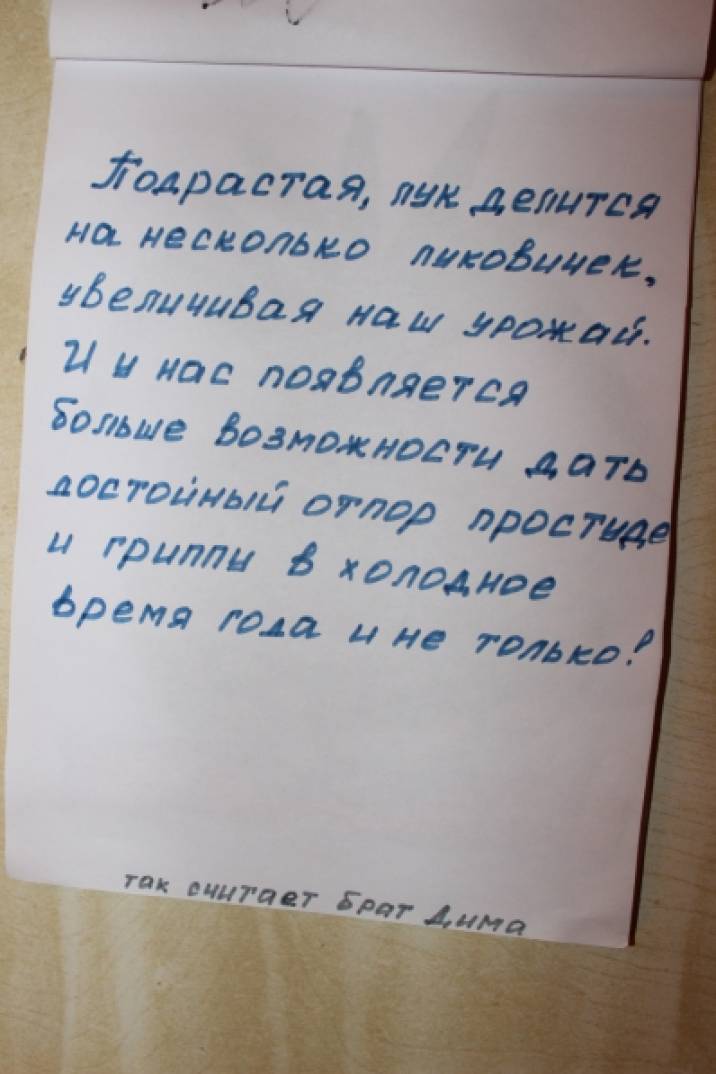 Подрастая, лук делится
на несколько луковичек,
увеличивая наш урожай.
И у нас появляется
больше возможности дать
достойный отпор простуде
и гриппу в холодное
время года и не только!
так считает брат Дима